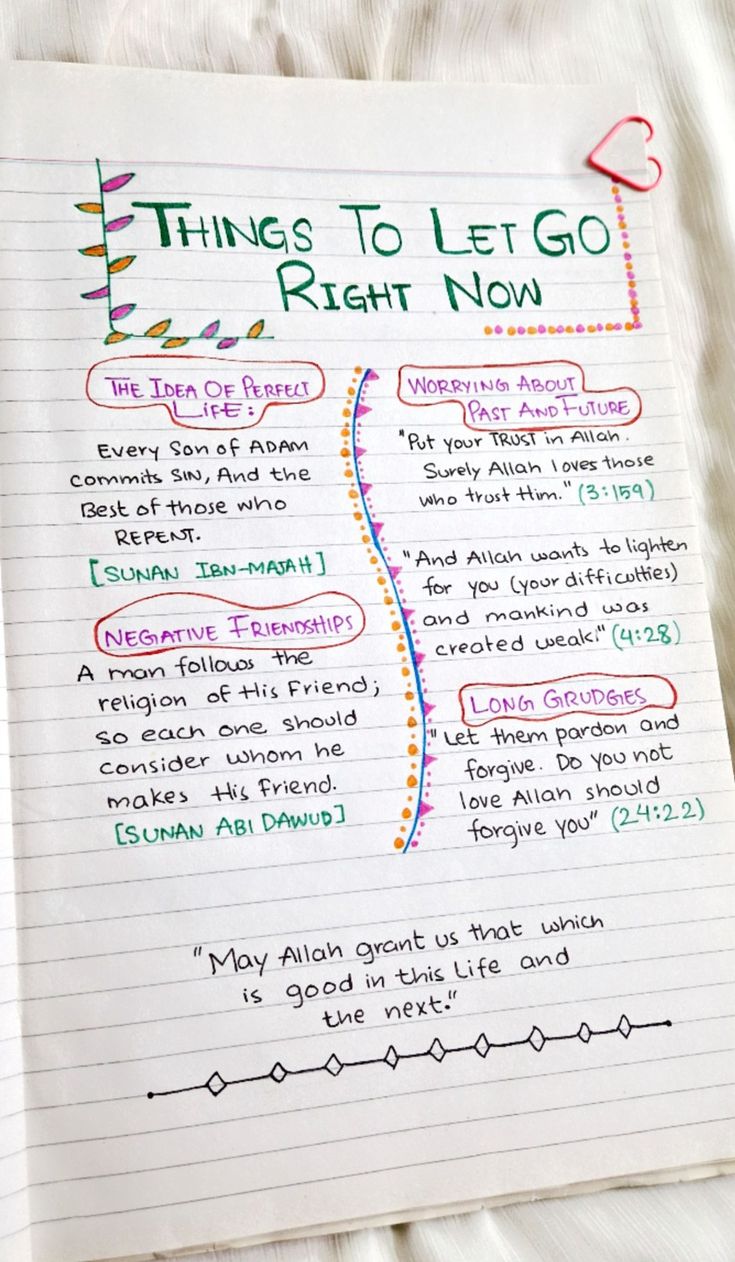 THINGS TO LET GO
RIGHT NOW
THE IDEA OF PERFECT
LIFE:
Every Son of ADAM
commits SIN, And the
Best of those who
REPENT.
[SUNAN IBN-MAJAH]
NEGATIVE FRIENDSHIPS
A man follows the
religion of His Friend;
so each one should
consider whom he
makes His friend.
[SUNAN ABI DAWUD]
WORRYING ABOUT
PAST AND FUTURE
"Put your TRUST in Allah.
Surely Allah loves those
who trust Him." (3:159)
"And Allah wants to lighten
for you (your difficulties)
and mankind was
created weak." (4:28)
LONG GRUDGES
"Let them pardon and
forgive. Do you not
love Allah should
forgive you" (24:22)
"May Allah grant us that which
is good in this Life and
the next."